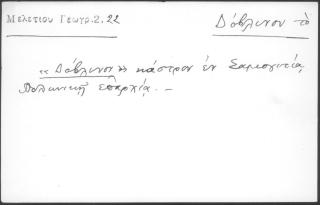 Μελετίου Γεωγρ.2. 22
Δόβλινον τὸ
«Δόβλινον» κάστρον ἐν Σαμογιτίᾳ,
Πολωνικῇ ἐπαρχίᾳ. —